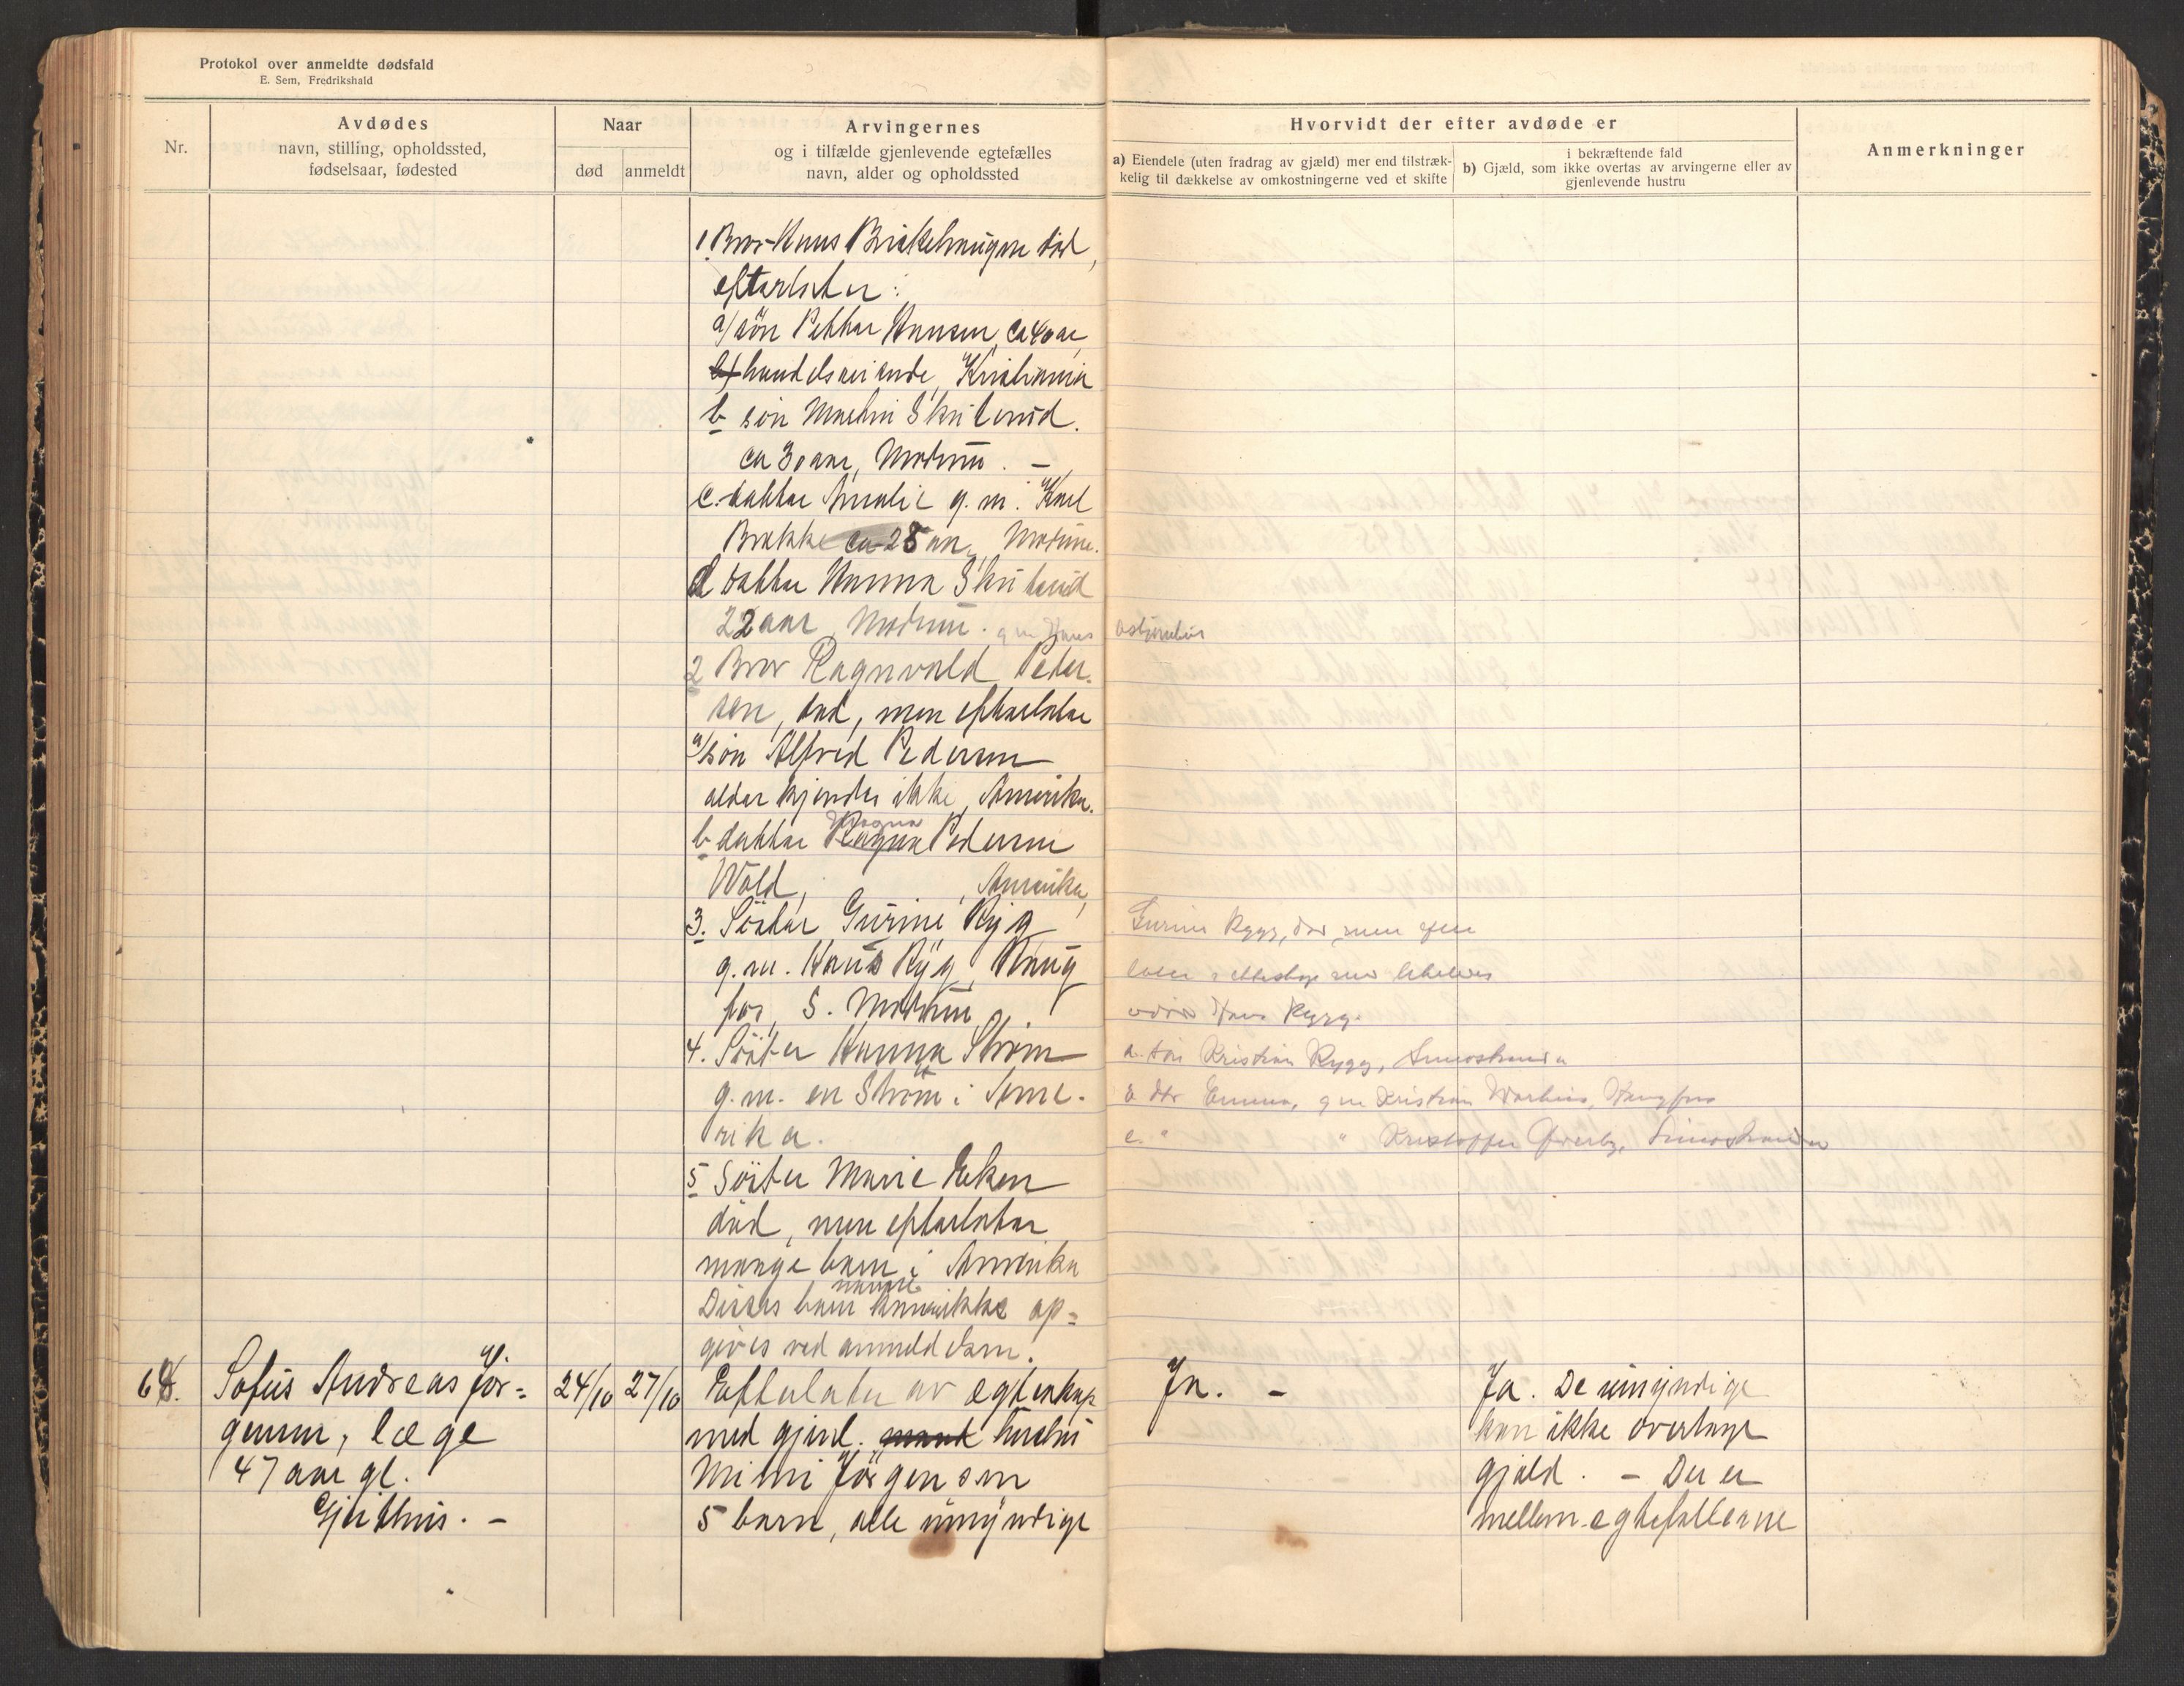 Protokol over anmeldte dødsfald
E. Sem, Fredrikshald
Nr.
Avdødes
navn, stilling, opholdssted,
fødselsaar, fødested
Naar
død
anmeldt
Arvingernes
og i tilfælde gjenlevende egtefælles
navn, alder og opholdssted
Hvorvidt der efter avdøde er
a) Eiendele (uten fradrag av gjæld) mer end tilstræk-
kelig til dækkelse av omkostningerne ved et skifte
i bekræftende fald
b) Gjæld, som ikke overtas av arvingerne eller av
gjenlevende hustru
Anmerkninger
1. Bror Hans död,
efterlater:
a/ sön Petter Hansen, ca 40 aar
handelsreisende, Kristiania
b sön Martin Skuterud.
ca 30 aar, Modum. -
c. datter Amalie g. m. Karl
Brække ca 28 aar, Modum.
d datter Hanna Skuterud
22 aar, Modum. gm Hans
2 Bror Ragnvald Peder-
sen, död, men efterlater
a/ sön Alfred Pedersen
alder kjendes ikke, Amerika.
b datter Ragna Pedersen
Wold, Amerika,
3. Söster Gurine Ryg
g. m. Hans Ryg, Haug
for, S. Modum
4. Söster Hanna Ström
g. m. en Ström i Ame-
rika.
5 Söster Marie Eken
död, men efterlater
mange barn i Amerika
Disses barn navne kan ikke op-
gives ved anmeldelsen.
Gurine Rygg, död, men efter
later i ekteskap med
Hans Rygg.
a. sön Kristian Rygg, Simostranda
b dtr Emma, gm Kristian
c. " " Kristoffer Simostranda
64.
Sofus Andreas Jör-
gensen, læge
47 aar gl.
Gjeithus. -
24/10
27/10
Efterlater av egteskap
med gjenl. mand hustru
Mimi Jörgensen
5 barn, alle umyndige
Ja. -
Ja. De umyndige
kan ikke overtage
gjæld. - Der er
mellem egtefællerne